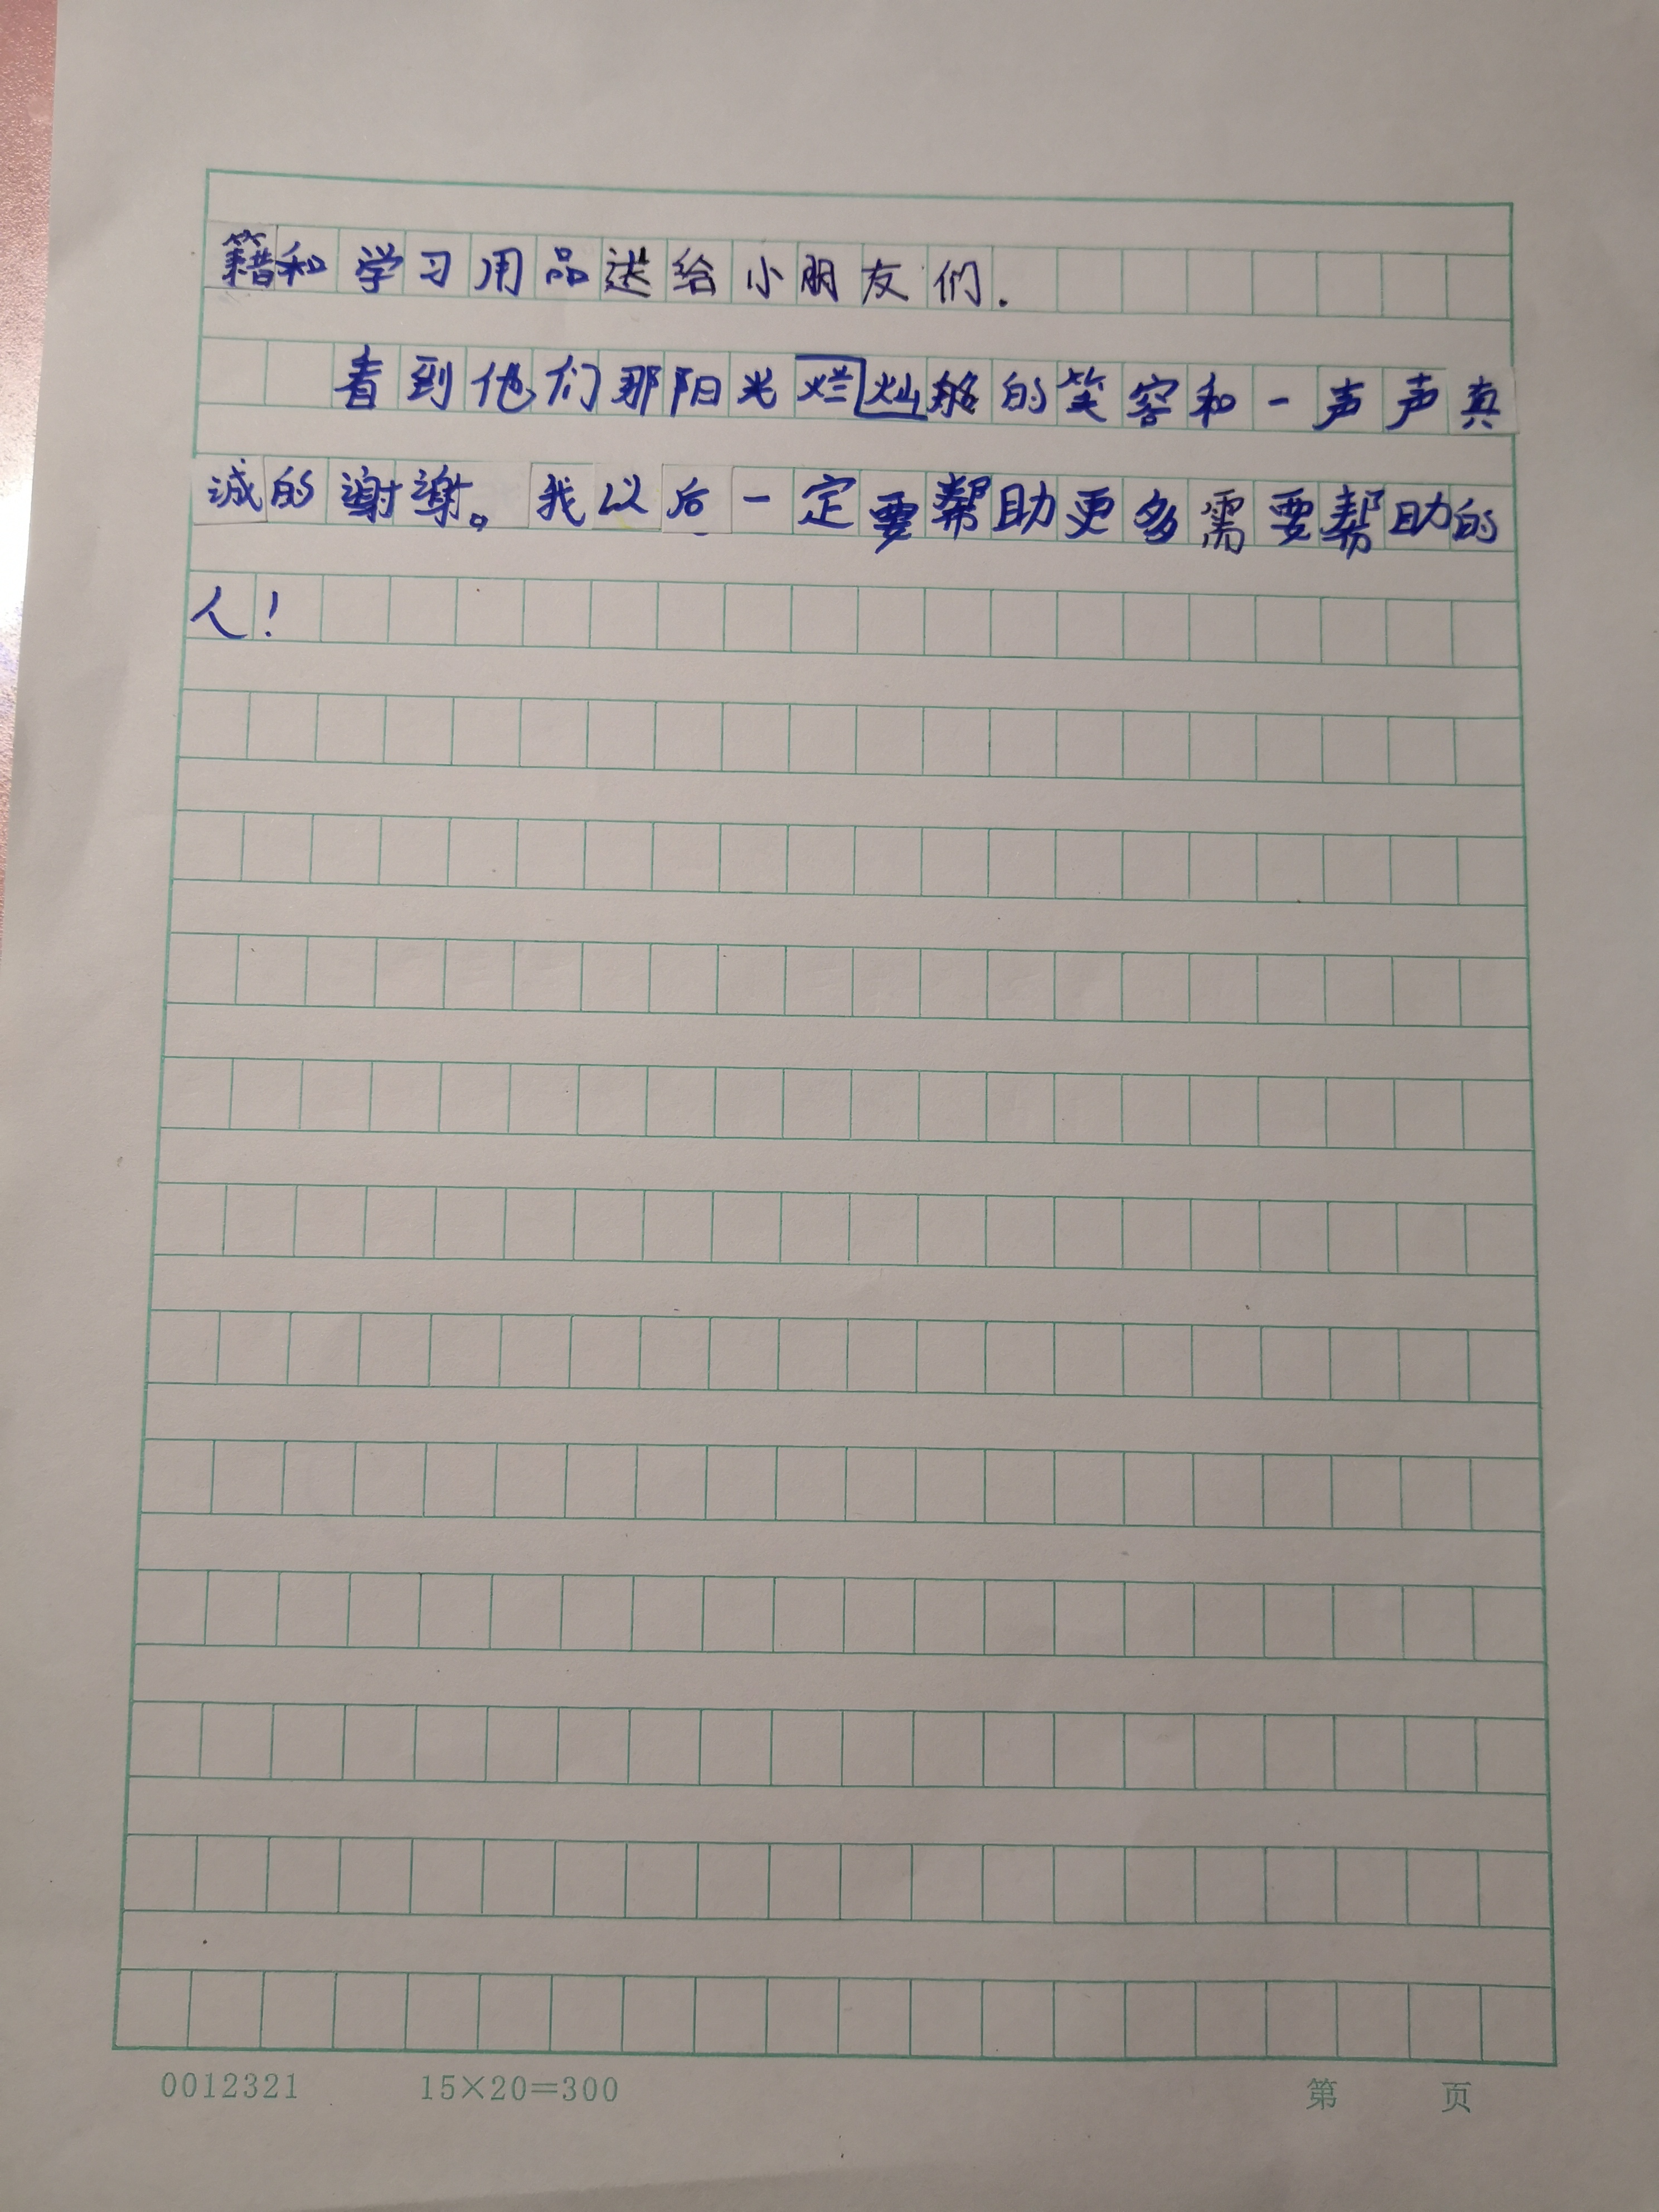 籍和学习用品送给小朋友们.
看到他们那阳光烂灿般的笑容和一声声真
诚的谢谢。我以后一定要帮助更多需要帮助的
人!
0012321 15×20=300 第 页